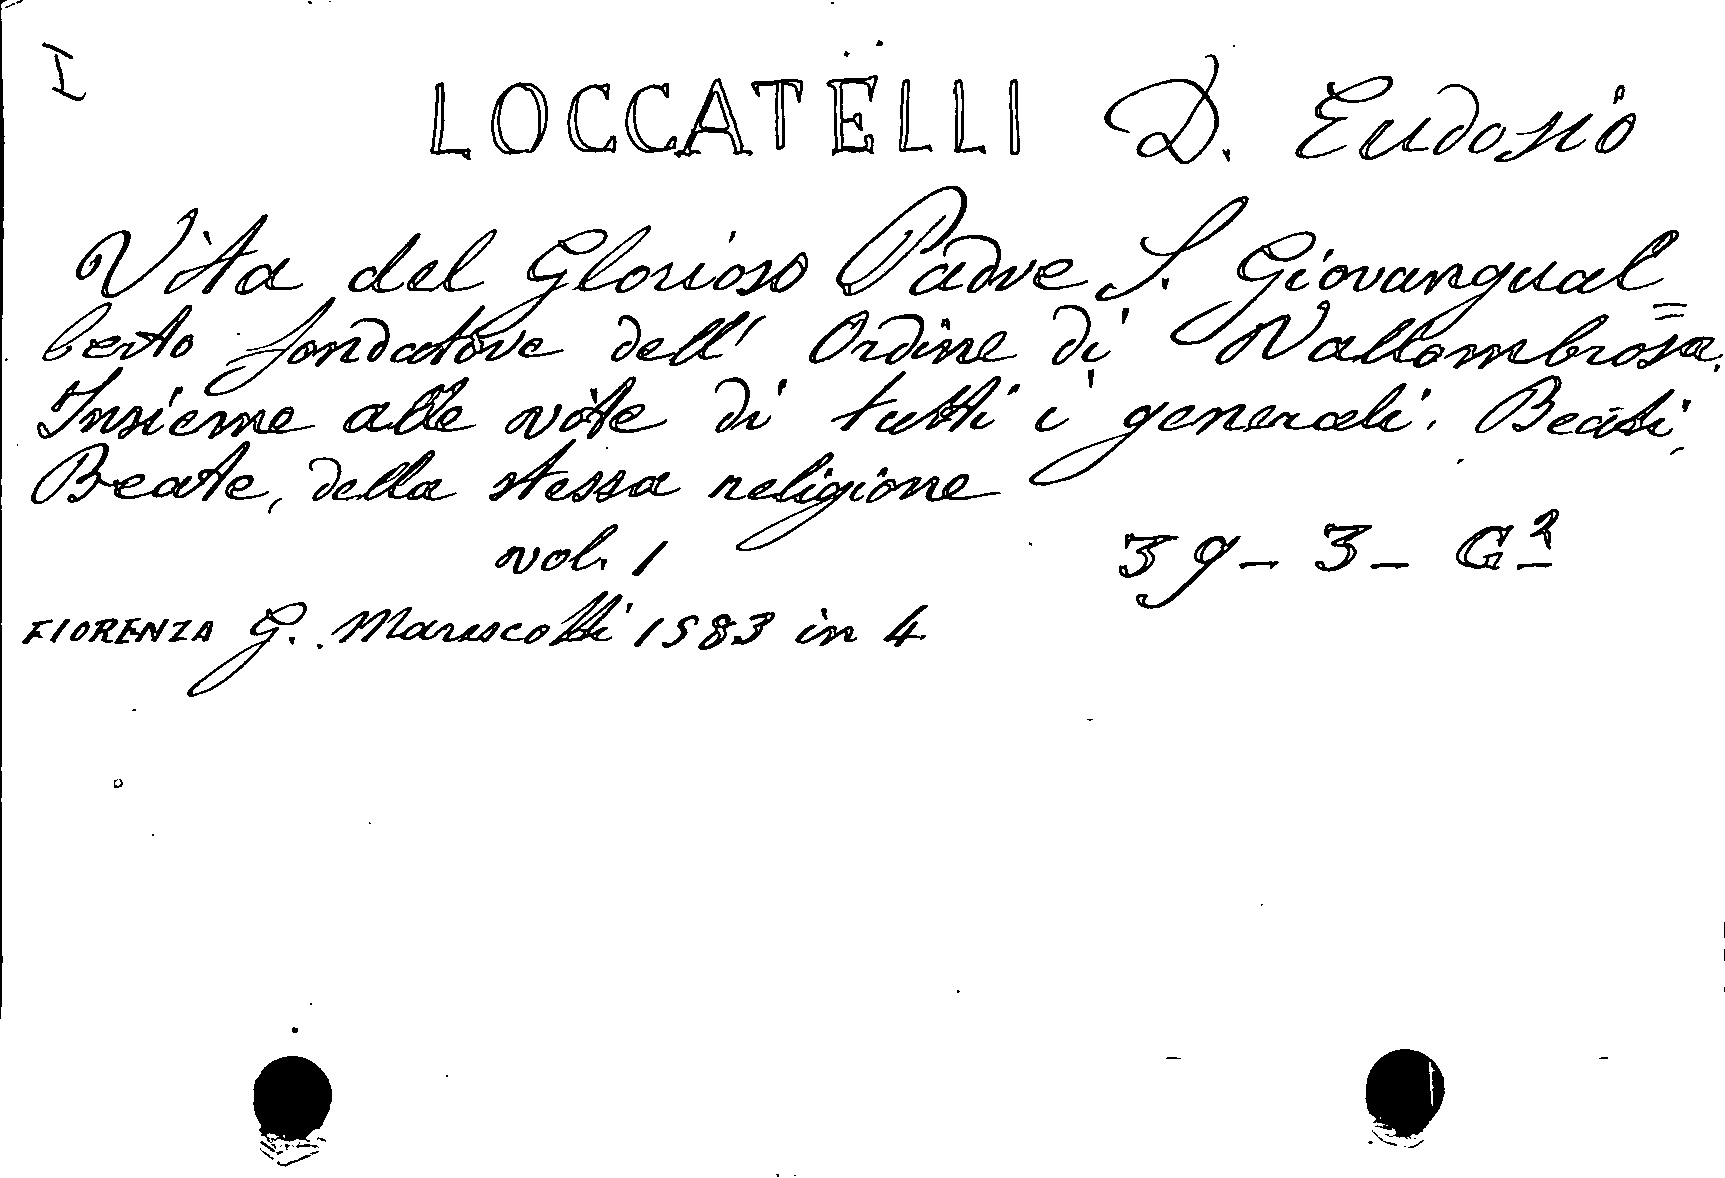 I
LOCCATELLI D. Eudosio
Vita del Glorioso Padre S. Giovangual=
berto fondatore dell' Ordine di Vallombrosa.
Insieme alle vite di tutti i generali. Beati,
Beate, della stessa religione
vol. 1 39-3-G²
FIORENZA G. Marescotti 1583 in 4